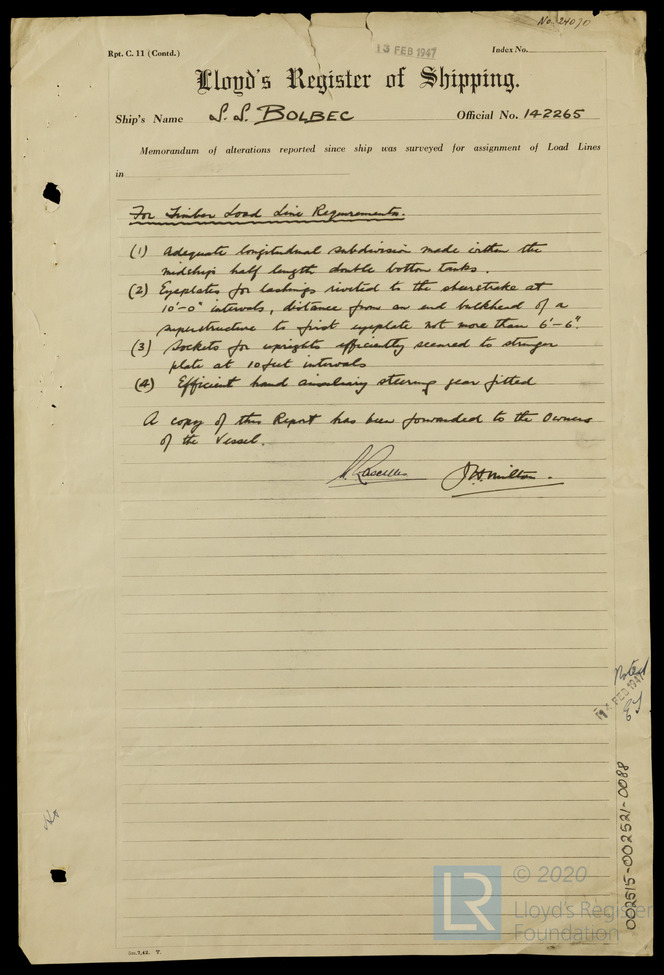 No. 24070
Rpt. C. 11 (Contd.)
13 FEB 1947
Index No.
Lloyd's Register of Shipping.
Ship's Name S.S. BOLBEC
Official No. 142265
Memorandum of alterations reported since ship was surveyed for assignment of Load Lines
in
For Timber Load Line Requirements.
(1) Adequate longitudinal subdivision made within the
midships half length double bottom tanks.
(2) Eyeplates for lashings riveted to the sheerstrake at
10'-0" intervals, distance from an end bulkhead of a
superstructure to first eyeplate not more than 6'-6".
(3) Sockets for uprights efficiently secured to stringer
plate at 10 feet intervals
(4) Efficient hand auxiliary steering gear fitted
A copy of this Report has been forwarded to the Owners
of the Vessel.
J.H. Milton.
Noted
14 FEB 1947
002515-002521-0088
LR
© 2020
Lloyd's Register
Foundation